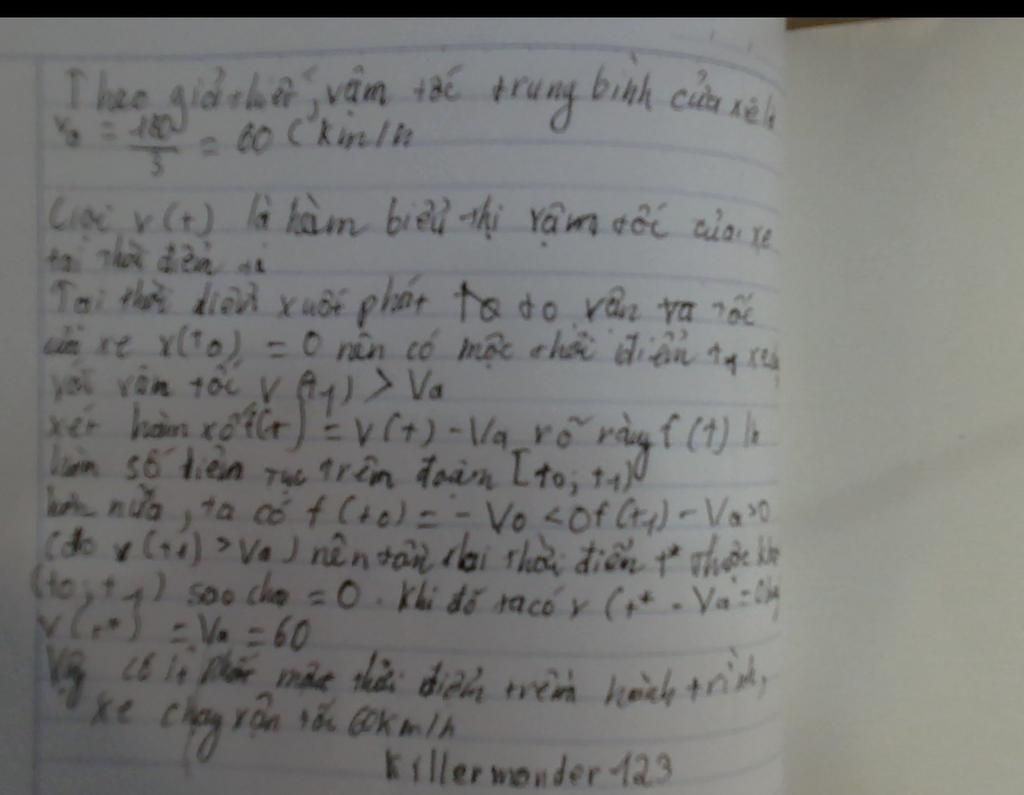 Theo giả thiết, vậm tốc trung bình của xe là
Va = 180/3 = 60 (Km/h
Gọi v(t) là hàm biểu thị vậm tốc của xe
tại thời điểm
Tại thời điểm xuất phát to vận tốc
của xe v(to) = 0 nên có một thời điểm t1 xe
với vận tốc v(t1) > Va
xét hàm số f(t) = v(t) - Va rõ ràng f(t) là
hàm số liên tục trên đoạn [to; t1)
hơn nữa, ta có f(to) = - Vo < 0 f(t1) - Va > 0
(do v(t1) > Va) nên tồn tại thời điểm t* thuộc
(to; t1) sao cho = 0. Khi đó ta có v(t* - Va = 0
v(t*) = Va = 60
Vậy có ít một thời điểm trên hành trình,
xe chạy vận tốc 60km/h
Killermonder 123